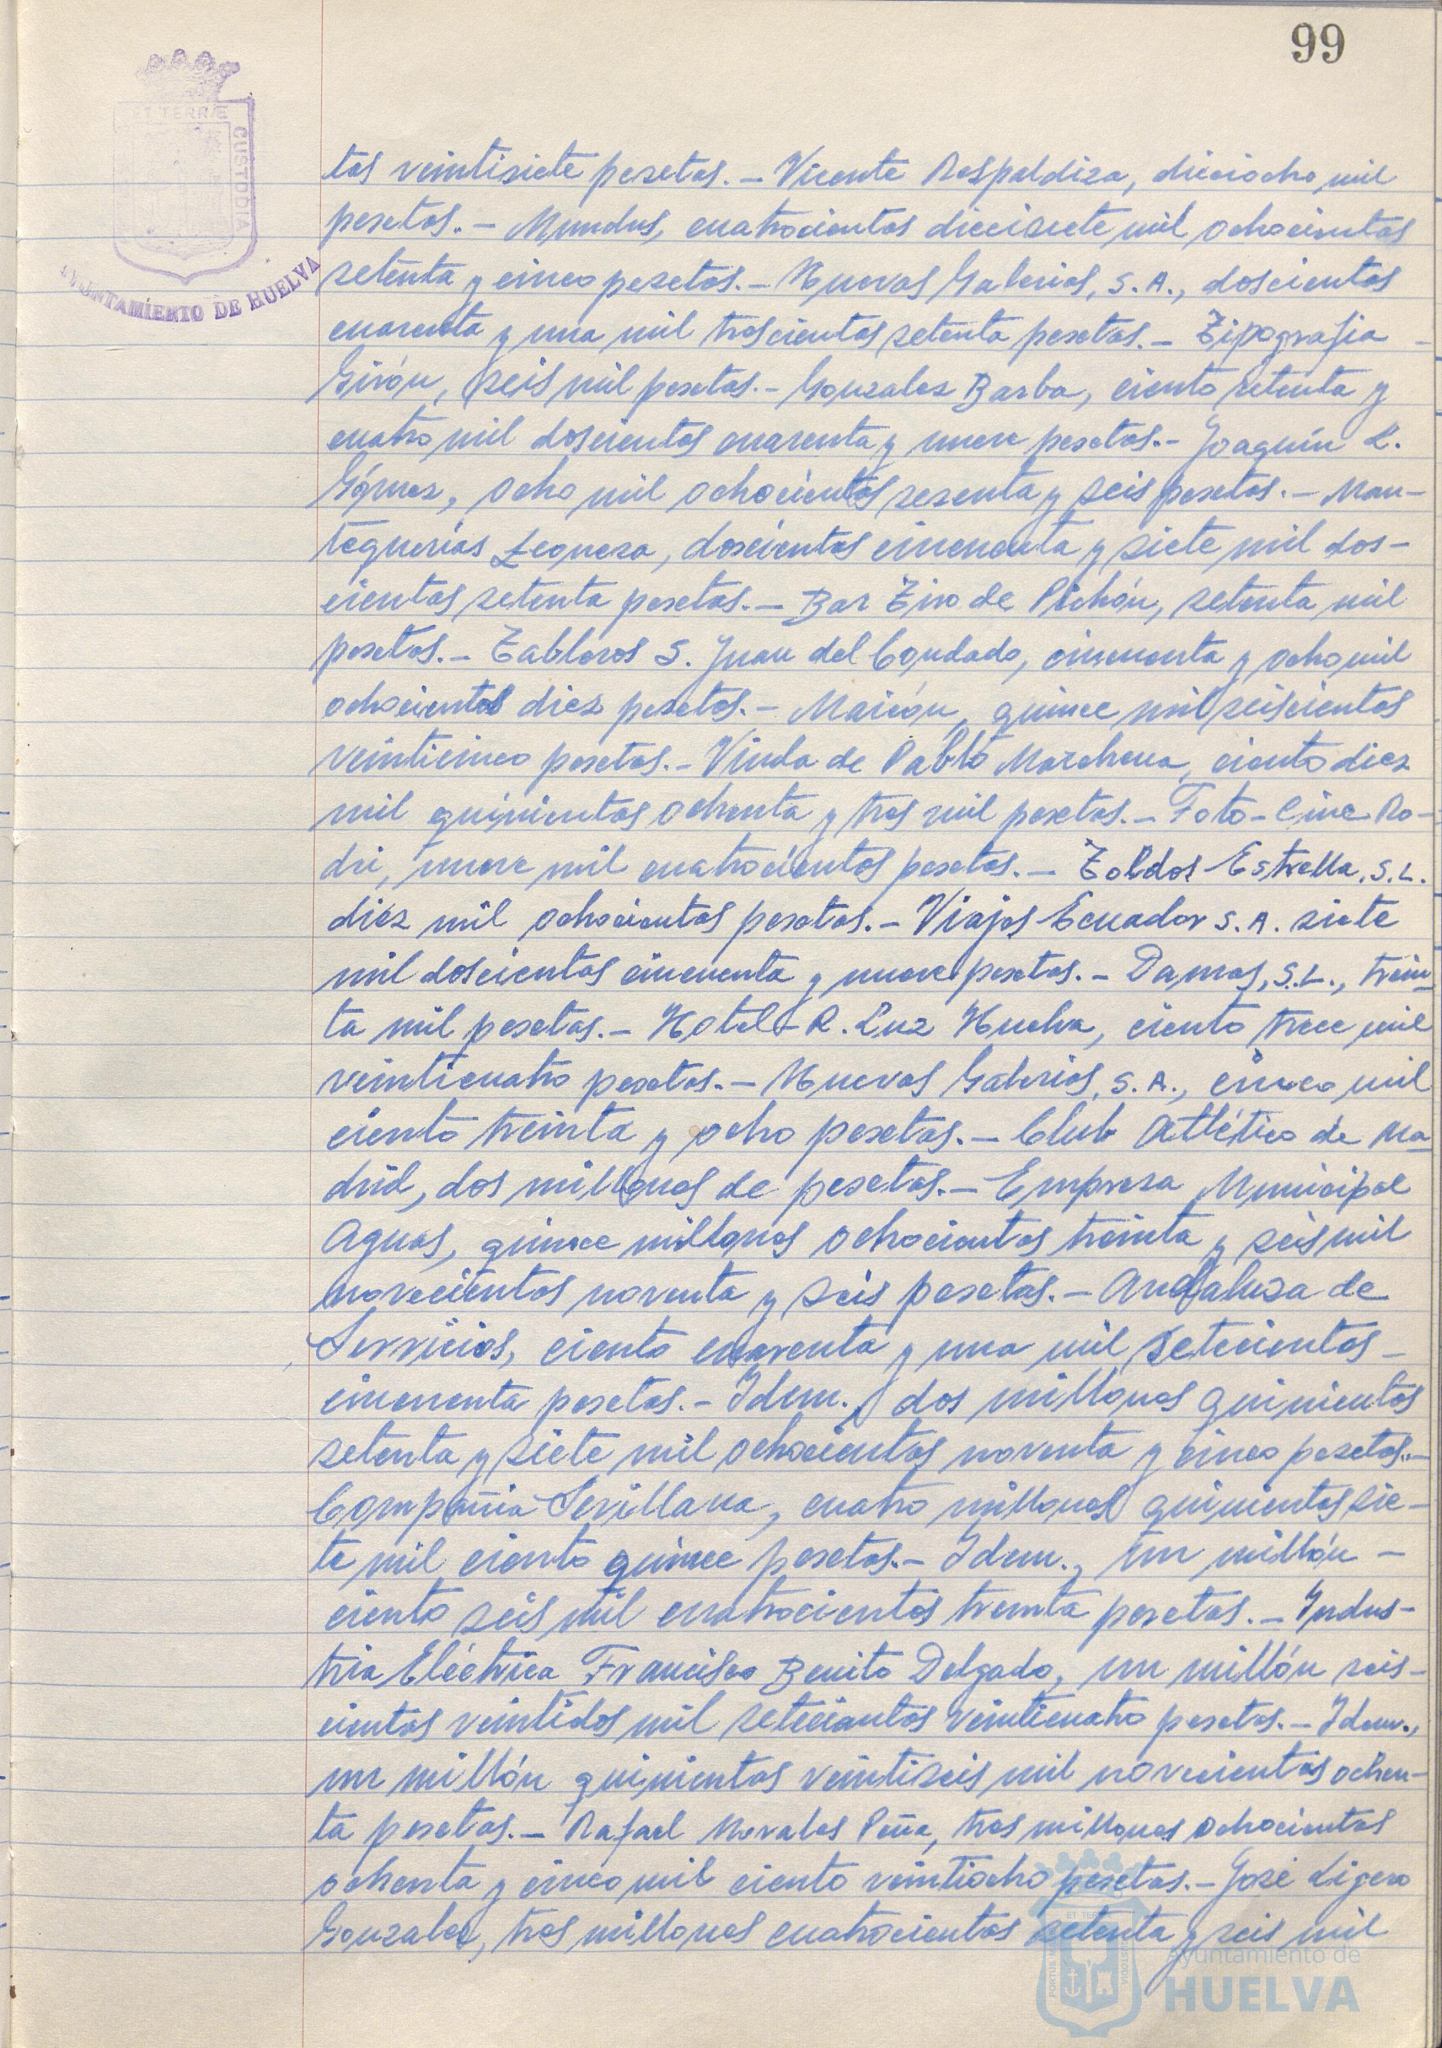 99
ET TERRÆ
CUSTODIA
AYUNTAMIENTO DE HUELVA
tas veintisiete pesetas.- Vicente Respaldiza, dieciocho mil
pesetas.- Mundus, cuatrocientas diecisiete mil ochocientas
setenta y cinco pesetas.- Nuevas Galerias, S.A., doscientas
cuarenta y una mil trescientas setenta pesetas.- Tipografia
Girón, seis mil pesetas.- Gonzalez Barba, ciento setenta y
cuatro mil doscientas cuarenta y nueve pesetas.- Joaquín L.
Gómez, ocho mil ochocientas sesenta y seis pesetas.- Man-
tequerias Leonesa, doscientas cincuenta y siete mil dos-
cientas setenta pesetas.- Bar Tiro de Pichón, setenta mil
pesetas.- Tableros S. Juan del Condado, cincuenta y ocho mil
ochocientas diez pesetas.- Maicán, quince mil seiscientas
veinticinco pesetas.- Viuda de Pablo Marchena, ciento diez
mil quinientas ochenta y tres mil pesetas.- Foto-Cine Ro-
dri, nueve mil cuatrocientas pesetas.- Toldos Estrella, S.L.
diez mil ochocientas pesetas.- Viajes Ecuador S.A. siete
mil doscientas cincuenta y nueve pesetas.- Damas, S.L., trein-
ta mil pesetas.- Hotel-R. Luz Huelva, ciento trece mil
veinticuatro pesetas.- Nuevas Galerias, S.A., cinco mil
ciento treinta y ocho pesetas.- Club Atlético de Ma-
drid, dos millones de pesetas.- Empresa Municipal
Aguas, quince millones ochocientas treinta y seis mil
novecientas noventa y seis pesetas.- Andaluza de
Servicios, ciento cuarenta y una mil setecientas-
cincuenta pesetas.- Idem., dos millones quinientas
setenta y siete mil ochocientas noventa y cinco pesetas.-
Compañia Sevillana, cuatro millones quinientas sie-
te mil ciento quince pesetas.- Idem., un millón -
ciento seis mil cuatrocientas treinta pesetas.- Indus-
tria Eléctrica Francisco Benito Delgado, un millón seis-
cientas veintidos mil setecientas veinticuatro pesetas.- Idem.,
un millón quinientas veintiseis mil novecientas ochen-
ta pesetas.- Rafael Morales Peña, tres millones ochocientas
ochenta y cinco mil ciento veintiocho pesetas.- José Ligero
Gonzalez, tres millones cuatrocientas setenta y seis mil
Ayuntamiento de
HUELVA